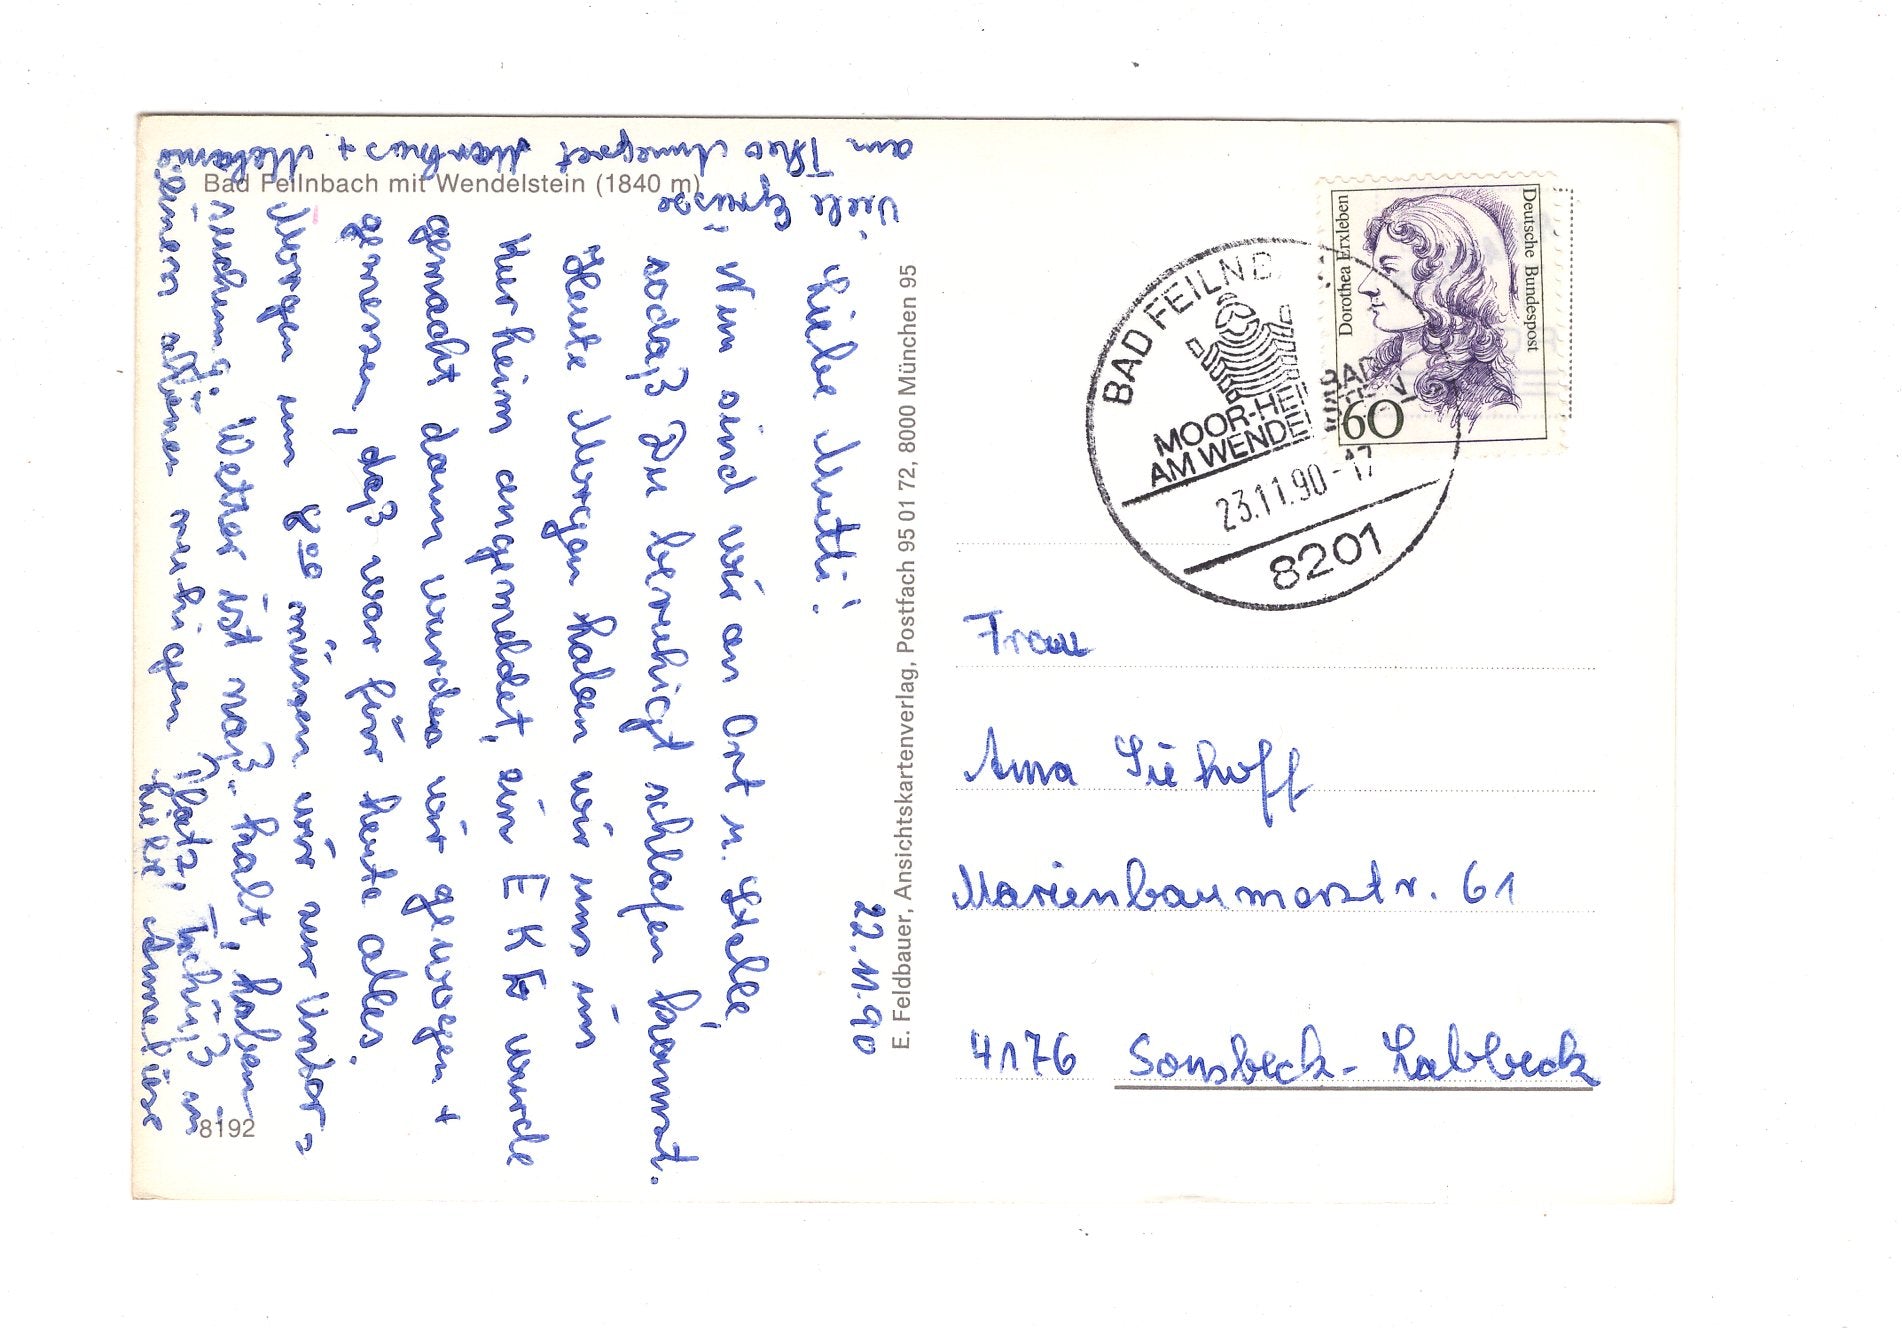 Bad Feilnbach mit Wendelstein (1840 m)
22.11.90
Liebe Mutti!
Nun sind wir an Ort u. Stelle,
sodaß Du beruhigt schlafen kannst.
Heute Morgen haben wir uns im
Kurheim angemeldet, ein EKG wurde
gemacht dann wurden wir gewogen +
gemessen, daß war für heute alles.
Morgen um 8⁰⁰ müssen wir zur Unter=
suchung. Wetter ist naß, kalt, haben
einen schönen ruhigen Platz, Tschüß
Liebe Anneliese
Viele Grüsse
an Theo Annegret Markus + Melanie
8192
E. Feldbauer, Ansichtskartenverlag, Postfach 95 01 72, 8000 München 95
Deutsche Bundespost
Dorothea Erxleben
60
BAD FEILNB
MOOR-HEI BAD
AM WENDEL
23.11.90-17
8201
Frau
Anna Siehoff
Marienbaumerstr. 61
4176 Sonsbeck-Labbeck